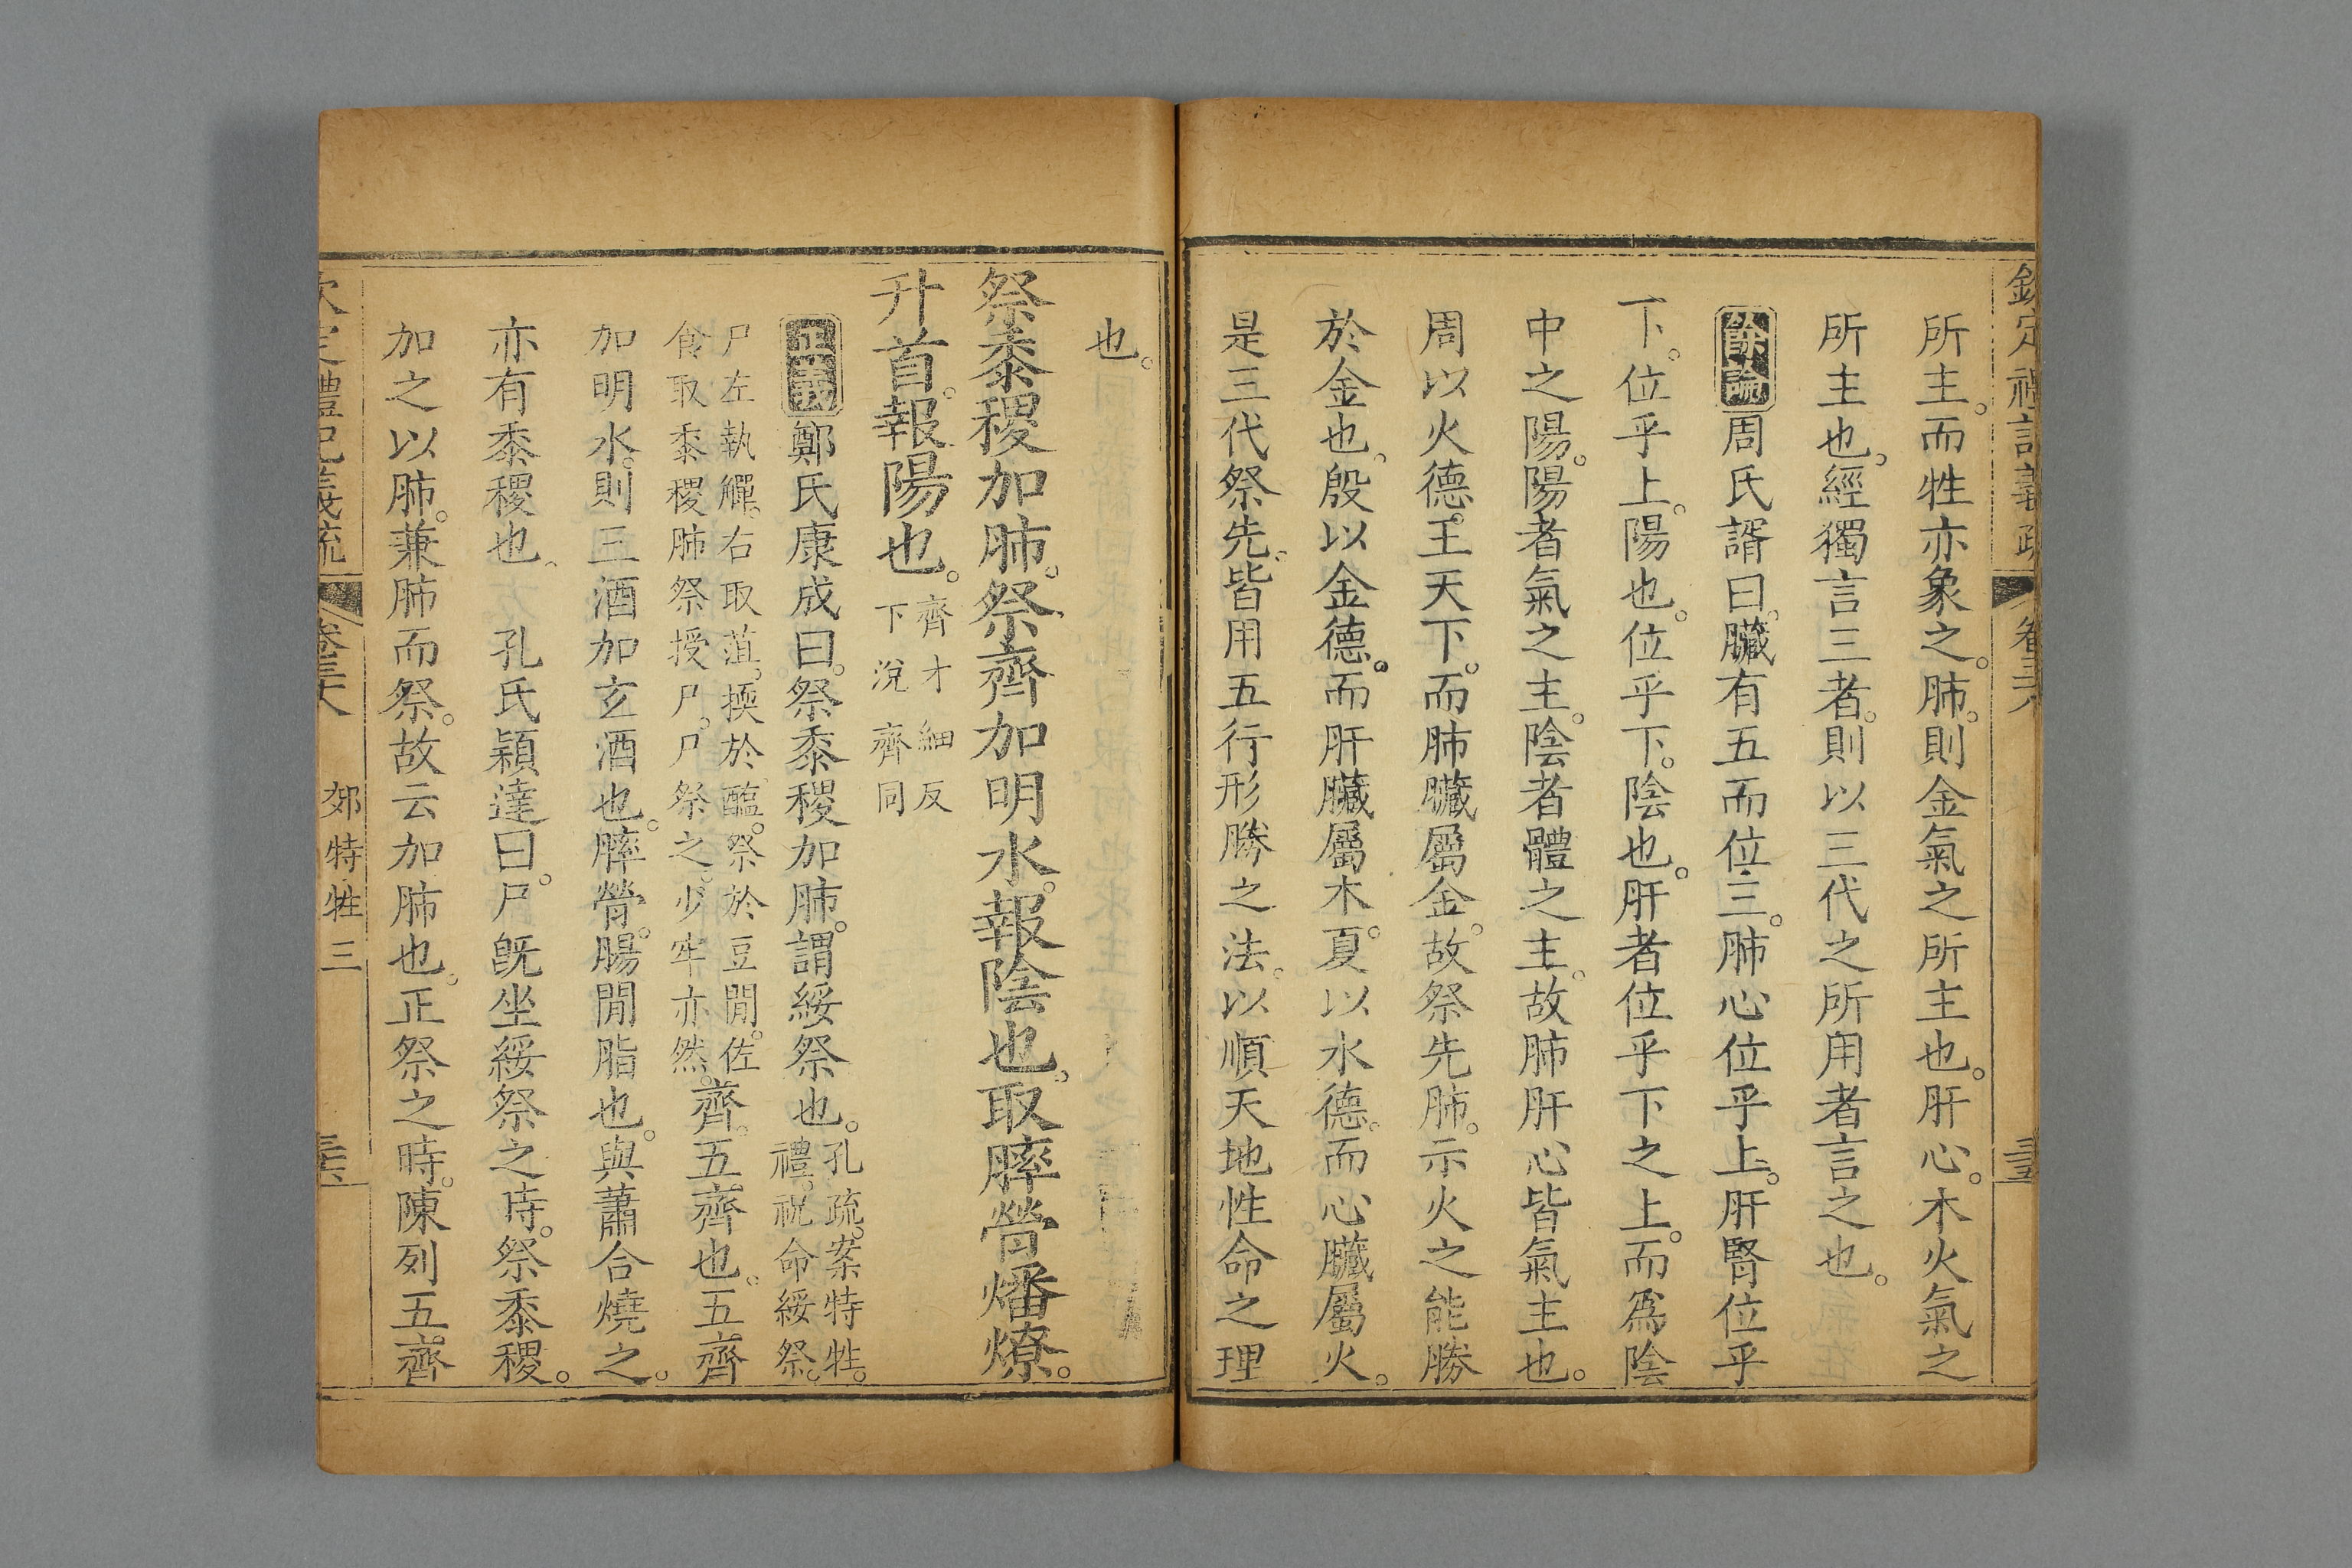 欽定禮記義疏 卷三十六 三五
所主。而牲亦象之。肺。則金氣之所主也。肝心。木火氣之
所主也。經獨言三者。則以三代之所用者言之也。
餘論周氏諝曰。臟有五而位三。肺心位乎上。肝腎位乎
下。位乎上。陽也。位乎下。陰也。肝者位乎下之上。而爲陰
中之陽。陽者氣之主。陰者體之主。故肺肝心皆氣主也。
周以火德。王天下。而肺臟屬金。故祭先肺。示火之能勝
於金也。殷以金德。而肝臟屬木。夏以水德。而心臟屬火。
是三代祭先。皆用五行形勝之法。以順天地性命之理
也。
祭黍稷加肺。祭齊加明水。報陰也。取膟膋燔燎。
升首。報陽也。齊才細反
下涚齊同
正義鄭氏康成曰。祭黍稷加肺。謂綏祭也。孔疏。案特牲。
禮。祝命綏祭。
尸左執觶。右取菹。擩於醢。祭於豆閒。佐
食取黍稷肺祭授尸。尸祭之。少牢亦然。齊。五齊也。五齊
加明水。則三酒加玄酒也。膟膋。腸閒脂也。與蕭合燒之。
亦有黍稷也。 孔氏穎達曰。尸旣坐綏祭之時。祭黍稷。
加之以肺。兼肺而祭。故云加肺也。正祭之時。陳列五齊
欽定禮記義疏 卷三十六 郊特牲三 三六